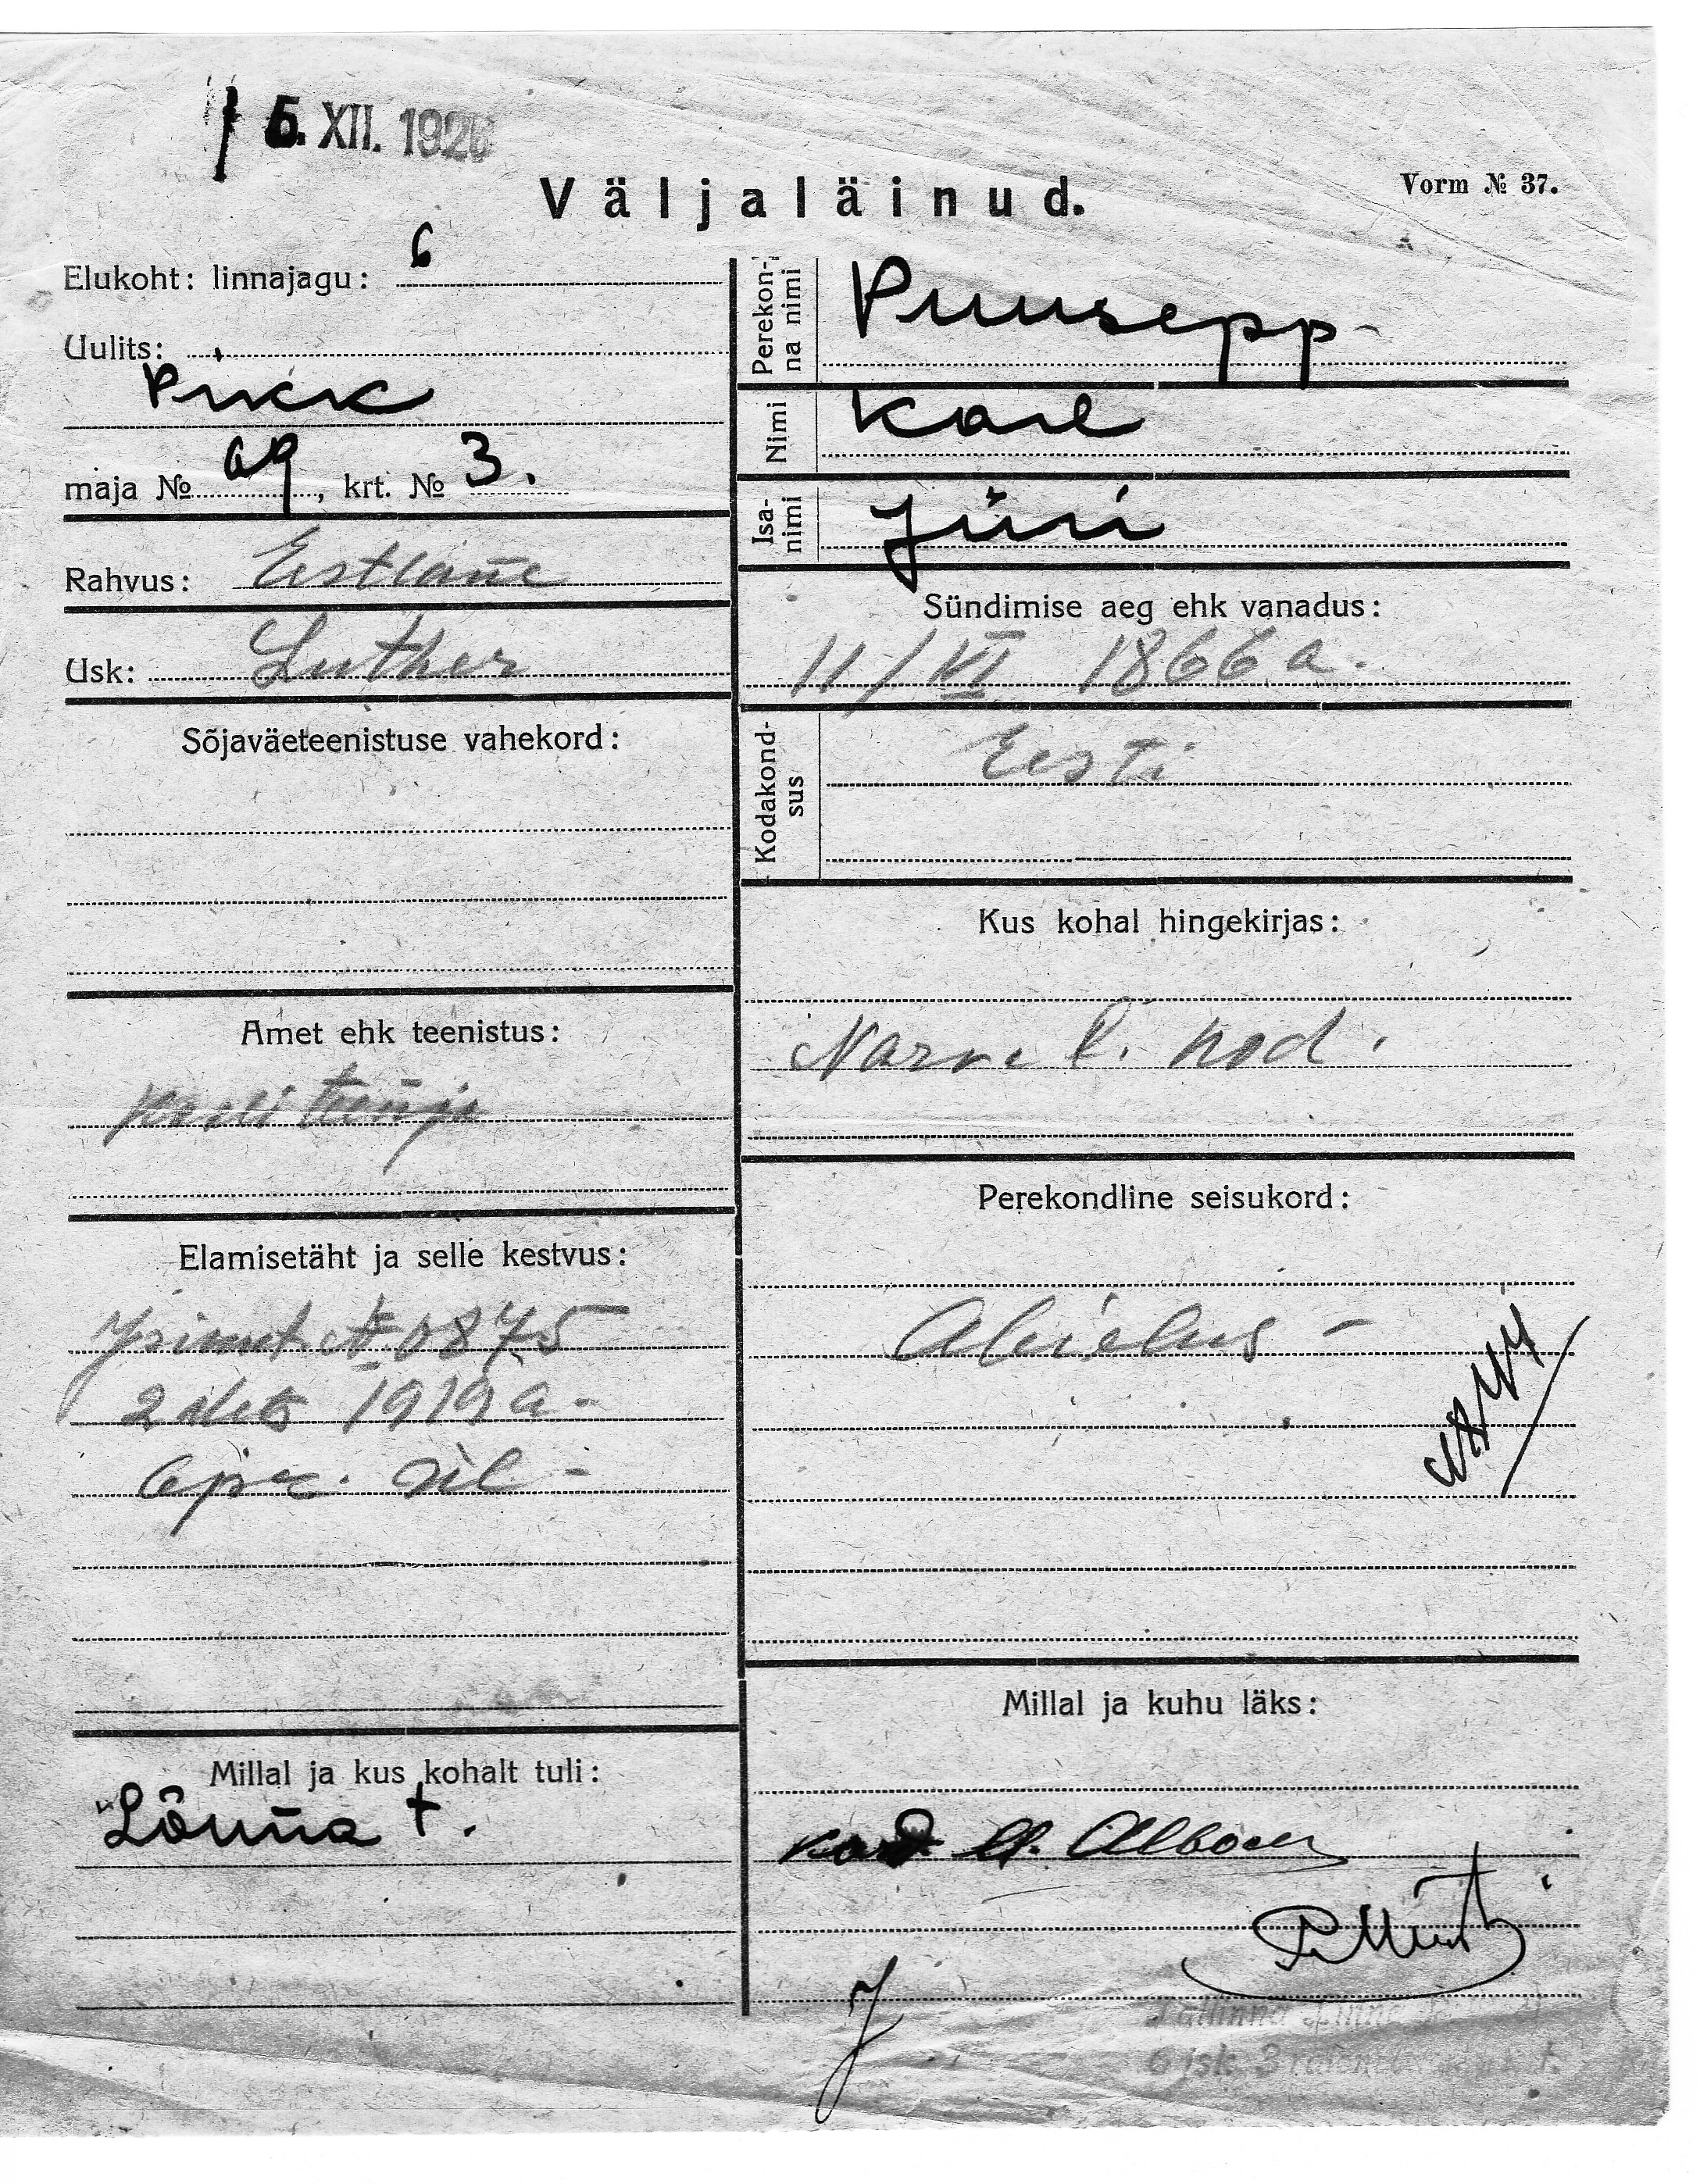 5. XII. 192
Väljaläinud.
Vorm № 37.
Elukoht: linnajagu: 6
Uulits:
Pikk
maja № 69, krt. № 3.
Rahvus: Eestlane
Usk: Luther
Sõjaväeteenistuse vahekord:
Amet ehk teenistus:
teenija
Elamisetäht ja selle kestvus:
№ 0875
2 dets 1919 a-
Millal ja kus kohalt tuli:
Lõuna t.
Perekon-
na nimi
Puusepp
Nimi
Karl
Isa-
nimi
Jüri
Sündimise aeg ehk vanadus:
11/VI 1866 a.
Kodakond-
sus
Eesti
Kus kohal hingekirjas:
Narva l. kod.
Perekondline seisukord:
Abielus -
Millal ja kuhu läks:
Tallinna Linna
6 jsk. 3